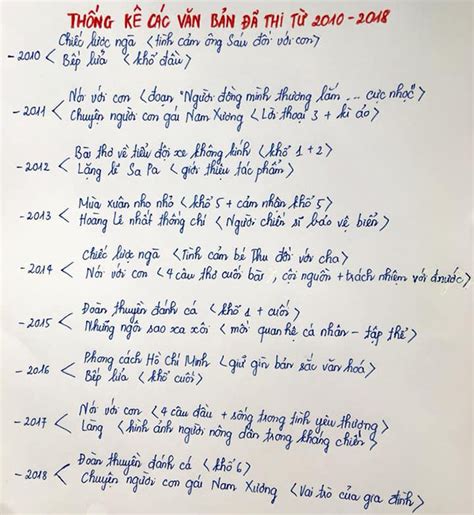 THỐNG KÊ CÁC VĂN BẢN ĐÃ THI TỪ 2010-2018
Chiếc lược ngà <tình cảm ông Sáu đối với con>
- 2010 < Bếp lửa <khổ đầu>
Nói với con <đoạn "Người đồng mình thương lắm ... cực nhọc">
- 2011 < Chuyện người con gái Nam Xương <Lời thoại 3 + kì ảo>
Bài thơ về tiểu đội xe không kính <khổ 1+2>
- 2012 < Lặng lẽ Sa Pa <giới thiệu tác phẩm>
Mùa xuân nho nhỏ <khổ 5 + cảm nhận khổ 5>
- 2013 < Hoàng Lê nhất thống chí <Người chiến sĩ bảo vệ biển>
Chiếc lược ngà <Tình cảm bé Thu đối với cha>
- 2014 < Nói với con <4 câu thơ cuối bài, cội nguồn + trách nhiệm với đnước>
Đoàn thuyền đánh cá <khổ 1 + cuối>
- 2015 < Những ngôi sao xa xôi <mối quan hệ cá nhân - tập thể>
Phong cách Hồ Chí Minh <giữ gìn bản sắc văn hoá>
- 2016 < Bếp lửa <khổ cuối>
Nói với con <4 câu đầu + sống trong tình yêu thương>
- 2017 < Làng <hình ảnh người nông dân trong kháng chiến>
Đoàn thuyền đánh cá <khổ 6>
- 2018 < Chuyện người con gái Nam Xương <Vai trò của gia đình>